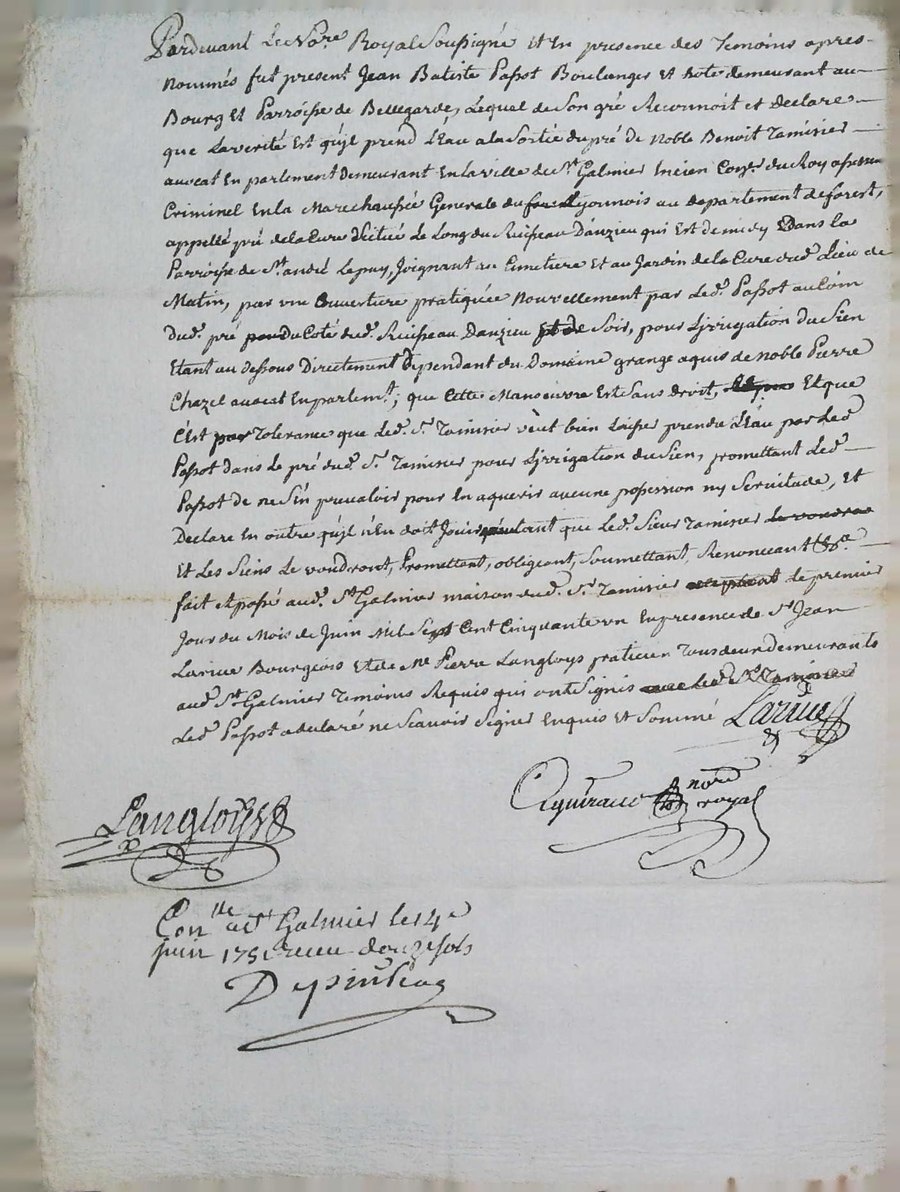 Pardevant Le No.re Royal Soussigné Et En presence des Temoins apres-
Nommés fut present Jean Batiste Passot Boulanger et hote demeurant au
Bourg Et Parroisse de Bellegarde, Lequel de Son gré Reconnoit et declare
que La verité Est qu'jl prend L'Eau a la Sortie du pré de Noble Benoit Tamisier
avocat En parlement Demeurant En la ville de St. Galmier Encien Con.er du Roy assesseur
Criminel En la Marechaussée Generale du Lyonnois au departement de forest,
appellé pré de la Cure Scitué Le Long du Ruisseau D'anzieu qui Est de midy Dans la
Parroisse de St. andré Le puy, Joignant au Cimetiere Et au Jardin de la Cure dud. Lieu de
Matin, par une Ouverture pratiquée Nouvellement par Led. Passot au Coin
dud. pré du Coté dud. Ruisseau Danzieu et de Soir, pour L'jrrigation du Sien
Etant au dessous Directement Dependant du Domaine grange aquis de Noble Pierre
Chazel avocat En parlem.t; que Cette Manoeuvre Est Sans droit, Et que
C'est par Tolerance que Led. Sr. Tamisier veut bien Laisser prendre L'Eau par Led.
Passot dans Le pré dud. Sr. Tamisier pour L'jrrigation du Sien, promettant Led.
Passot de ne S'en prevaloir pour En aquerir aucune possession ny Servitude, Et
Declare En outre qu'jl n'En doit Jouir qu'autant que Led. Sieur Tamisier le voudra
Et Les Siens Le voudront, Promettant, obligeant, Soumettant, Renonceant &a.
fait Et passé aud. St. Galmier maison dud. Sr. Tamisier acceptant Le premier
Jour du Mois de Juin Mil Sept Cent Cinquante un En presence de Sr. Jean
Larue Bourgeois Et de Me Pierre Langloys praticien Tous deux demeurants
aud. St. Galmier Temoins Requis qui ont Signés avec led. Sr. Tamisier
Led. Passot a declaré ne Scavoir Signer Enquis Et Sommé Larue
nore
royal
Langloys
Con.lle a St Galmier le 14e
juin 1751 receu douze sols